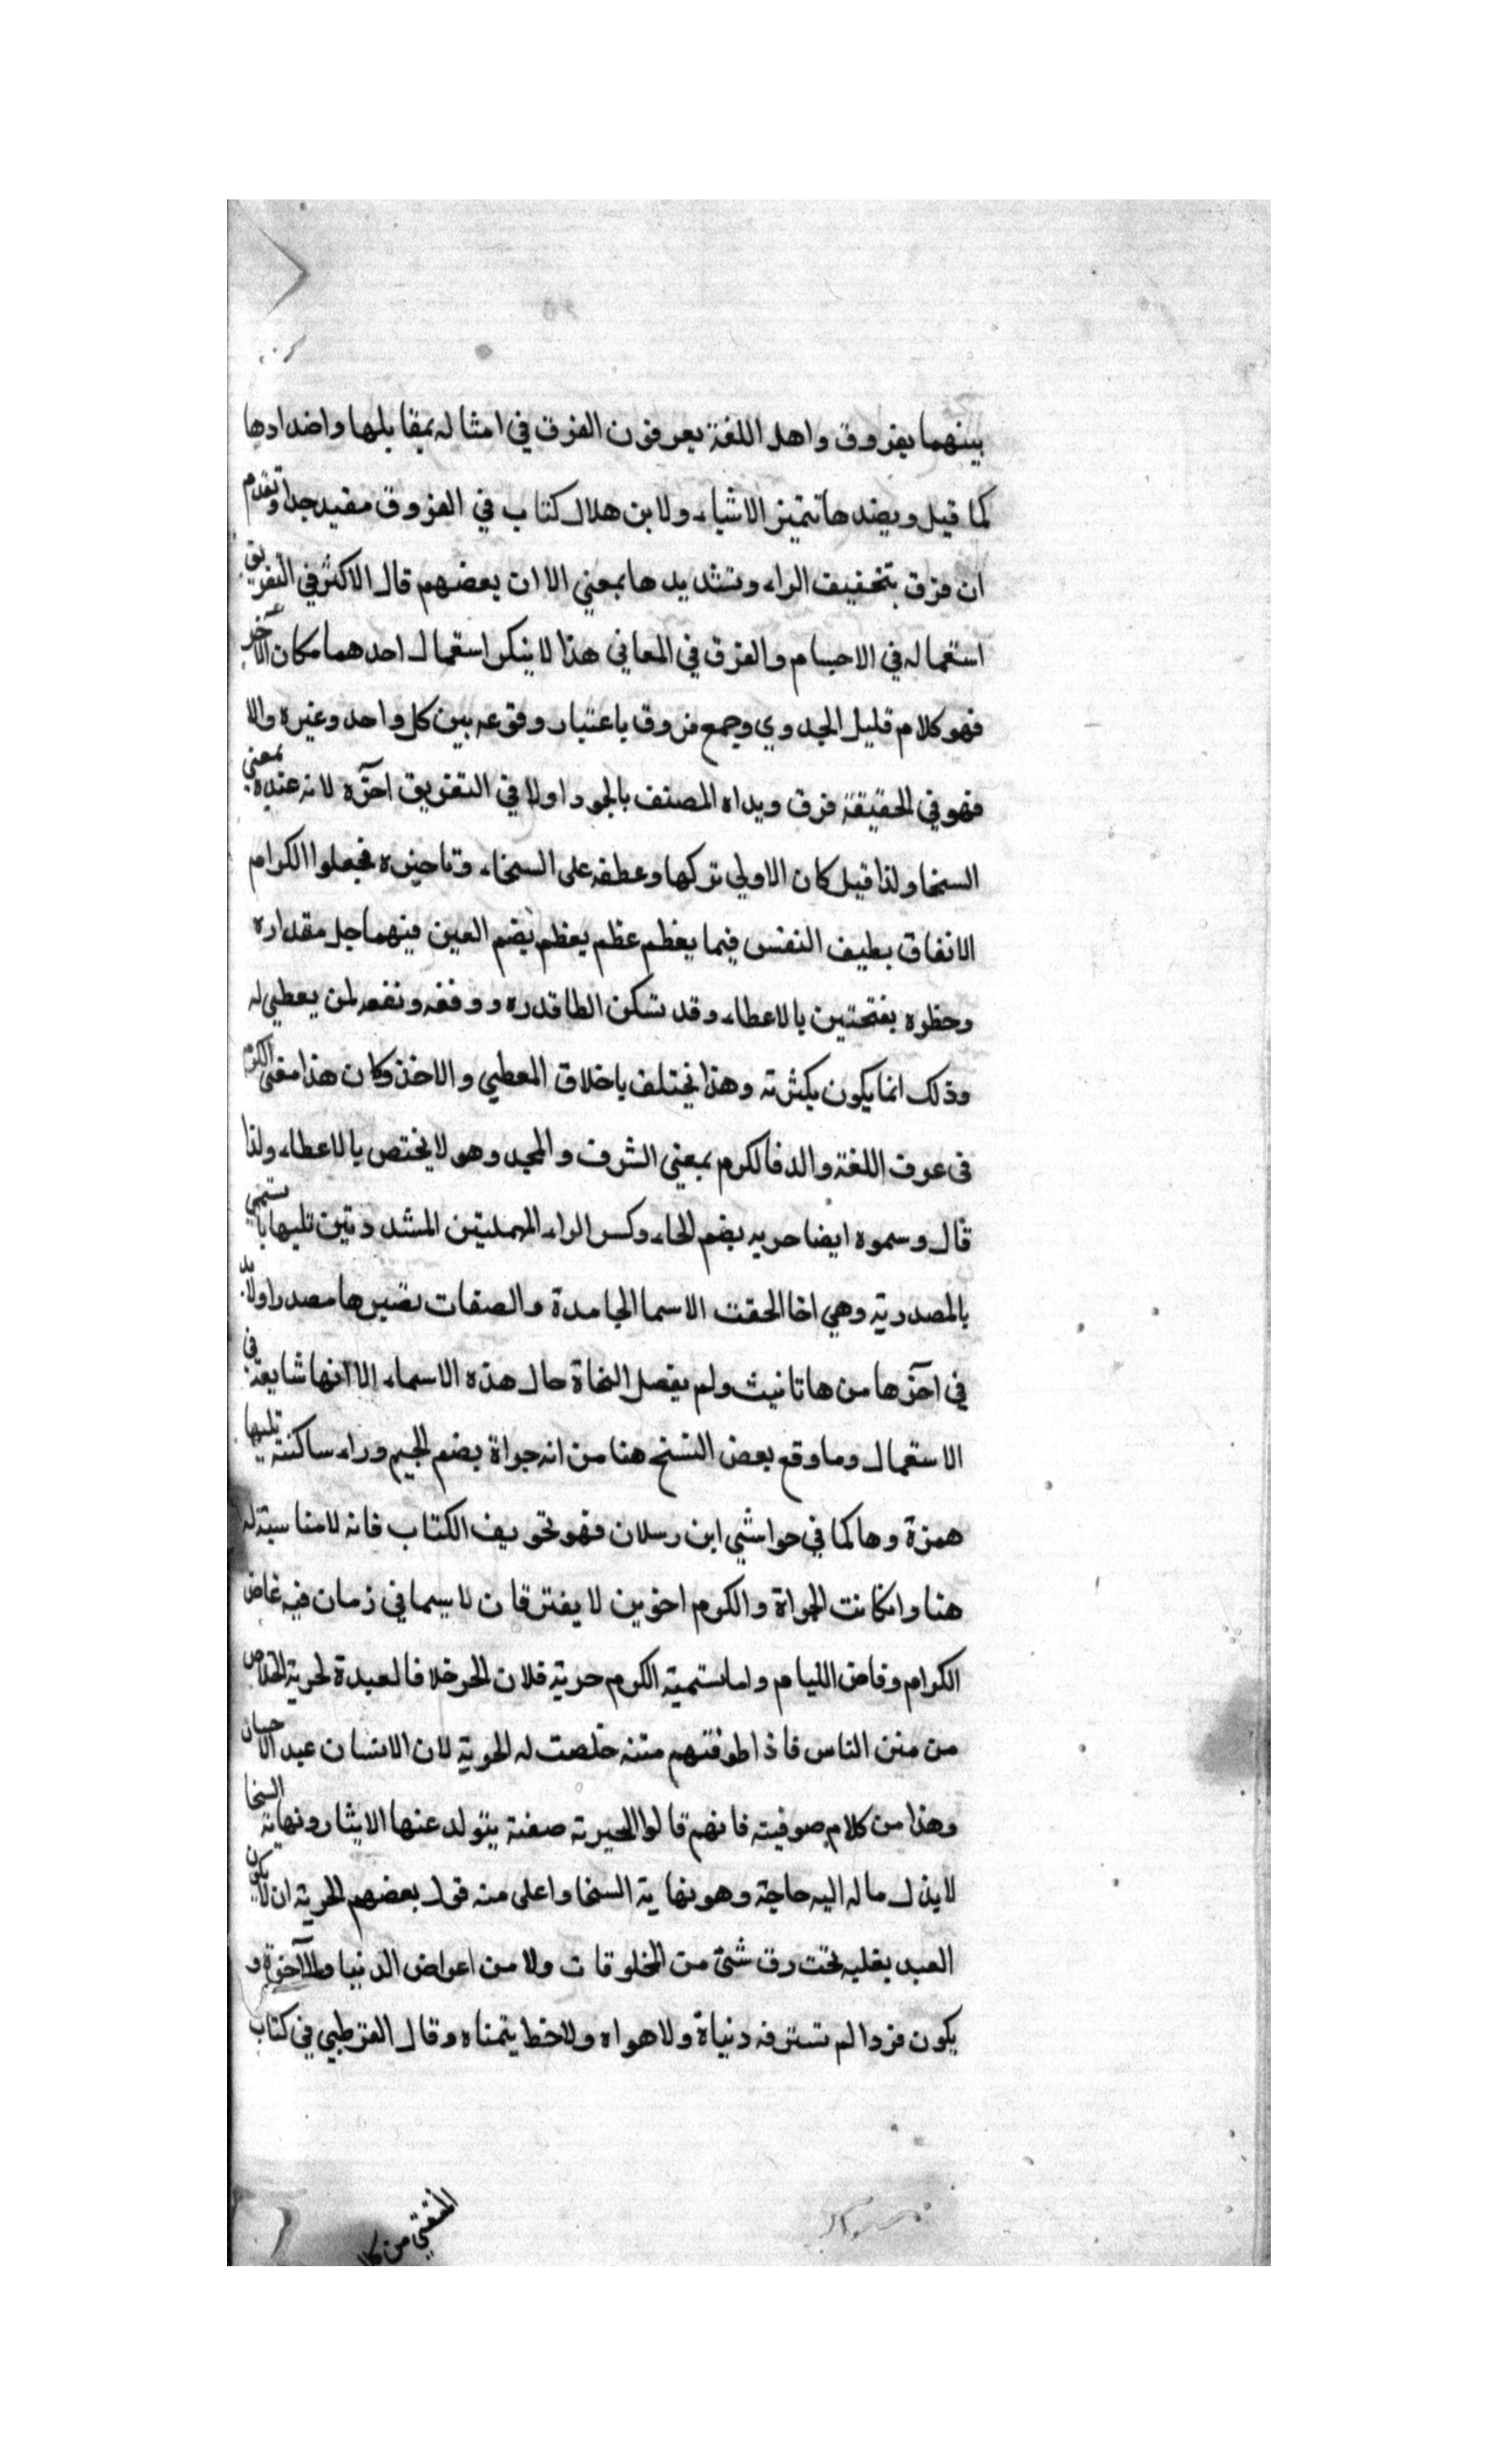 بينهما بفروق واهل اللغة يعرفون الفرق في امثاله بمقابلها واضدادها
كما قيل وبضدها تتميز الاشياء ولابن هلال كتاب في الفروق مفيد جدا وتقدم
ان فرق بتخفيف الراء وتشديدها بمعنى الا ان بعضهم قال الاكثر في التفريق
استعماله في الاجسام والفرق في المعاني هذا لا ينكر استعمال احدهما مكان الآخر
فهو كلام قليل الجدوي وجمع فروق باعتبار وقوعه بين كل واحد وغيره والا
فهو في الحقيقة فرق وبداه المصنف بالجود اولا في التفريق آخره لانه عنده بمعنى
السخا ولذا قيل كان الاولي تركها وعطفه على السخاء وتاخيره فجعلوا الكرام
الانفاق بطيف النفس فيما يعظم عظم يعظم بضم العين فيهما جل مقداره
وخطره بفتحتين بالاعطاء وقد تسكن الطا قدره ووقفه ونفعه لمن يعطي له
وذلك انما يكون بكثرته وهذا يختلف باخلاق المعطي والاخذ وكان هذا معنى الكرم
في عرف اللغة والد فالكرم بمعنى الشرف والمجد وهو لا يختص بالاعطاء ولذا
قال وسموه ايضا حريه بضم الحاء وكسر الراء المهملتين المشددتين تليها يا تسمي
بالمصدرية وهي اذا الحقت الاسما الجامدة والصفات تصيرها مصدرا ولابد
في آخرها من هاتانيث ولم يفصل النحاة حال هذه الاسماء الا انها شايعة في
الاستعمال وما وقع بعض النسخ هنا من انه جراة بضم الجيم وراء ساكنة تليها
همزة وها كما في حواشي ابن رسلان فهو تحريف الكتاب فانه لا مناسبة له
هنا وان كانت الجراة والكرم اخوين لا يفترقان لاسيما في زمان فيه غاض
الكرام وفاض الليام واما تسمية الكرم حرية فلان الحر خلافا لعبدة لحرية الخلاص
من منن الناس فاذا طوقتهم مننه خلصت له الحرية لان الانسان عبد الاحسان
وهذا من كلام صوفيته فانهم قالوا الحيرته صفة يتولد عنها الايثار ونهاية السخا
لا يذل ماله اليه حاجة وهو نهاية السخا واعلى منه قول بعضهم الحرية ان لا يكون
العبد بقلبه تحت رق شئ من المخلوقات ولا من اعراض الدنيا والآخرة و
يكون فردا لم تسترقه دنياة ولا هواه ولا خط يتمناه وقال القرطبي في كتاب
المفتي من كلا